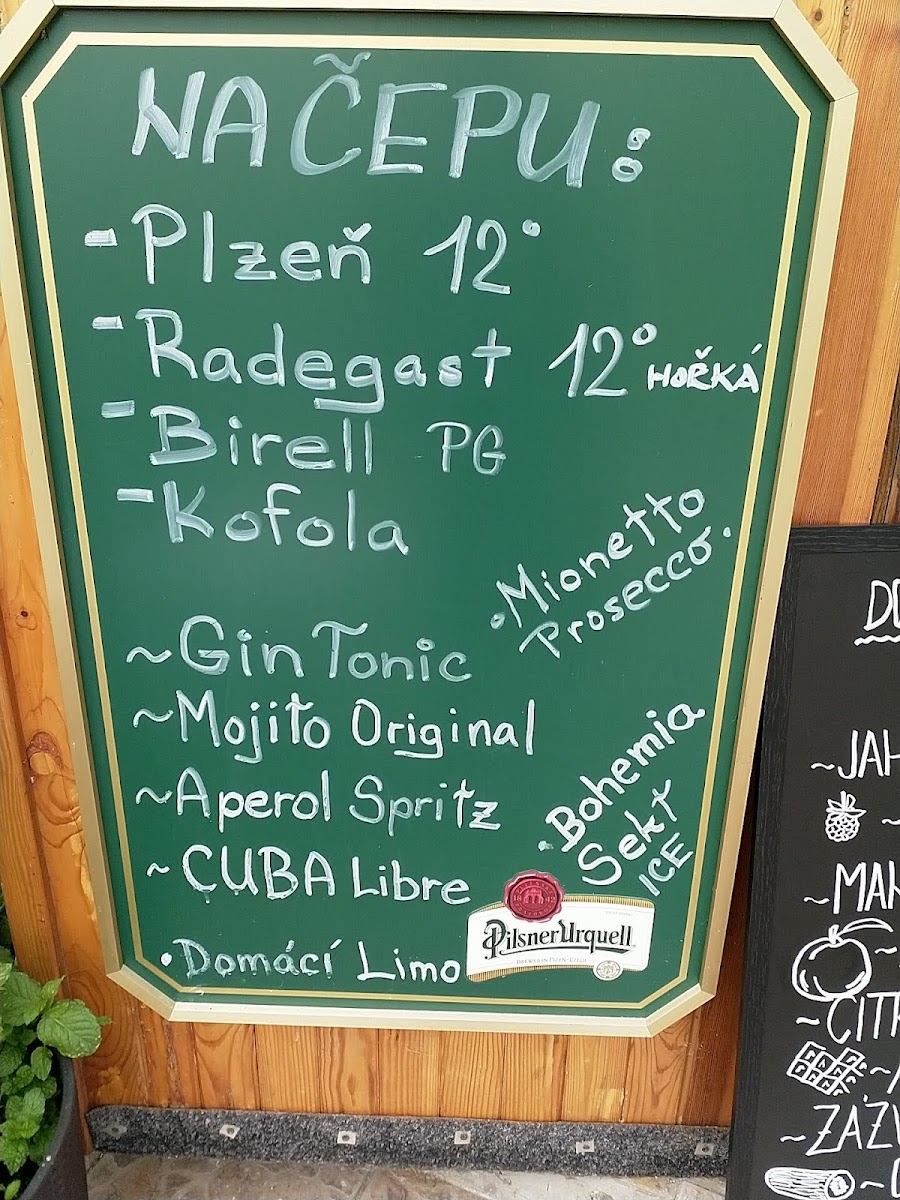 NA ČEPU:
- Plzeň 12°
- Radegast 12° HOŘKÁ
- Birell PG
- Kofola
• Mionetto
Prosecco.
~ Gin Tonic
~ Mojito Original
~ Aperol Spritz
~ CUBA Libre
• Bohemia
Sekt
ICE
• Domácí Limo
1842
Pilsner Urquell
~JAH
~MAN
~CITR
~ZÁZV